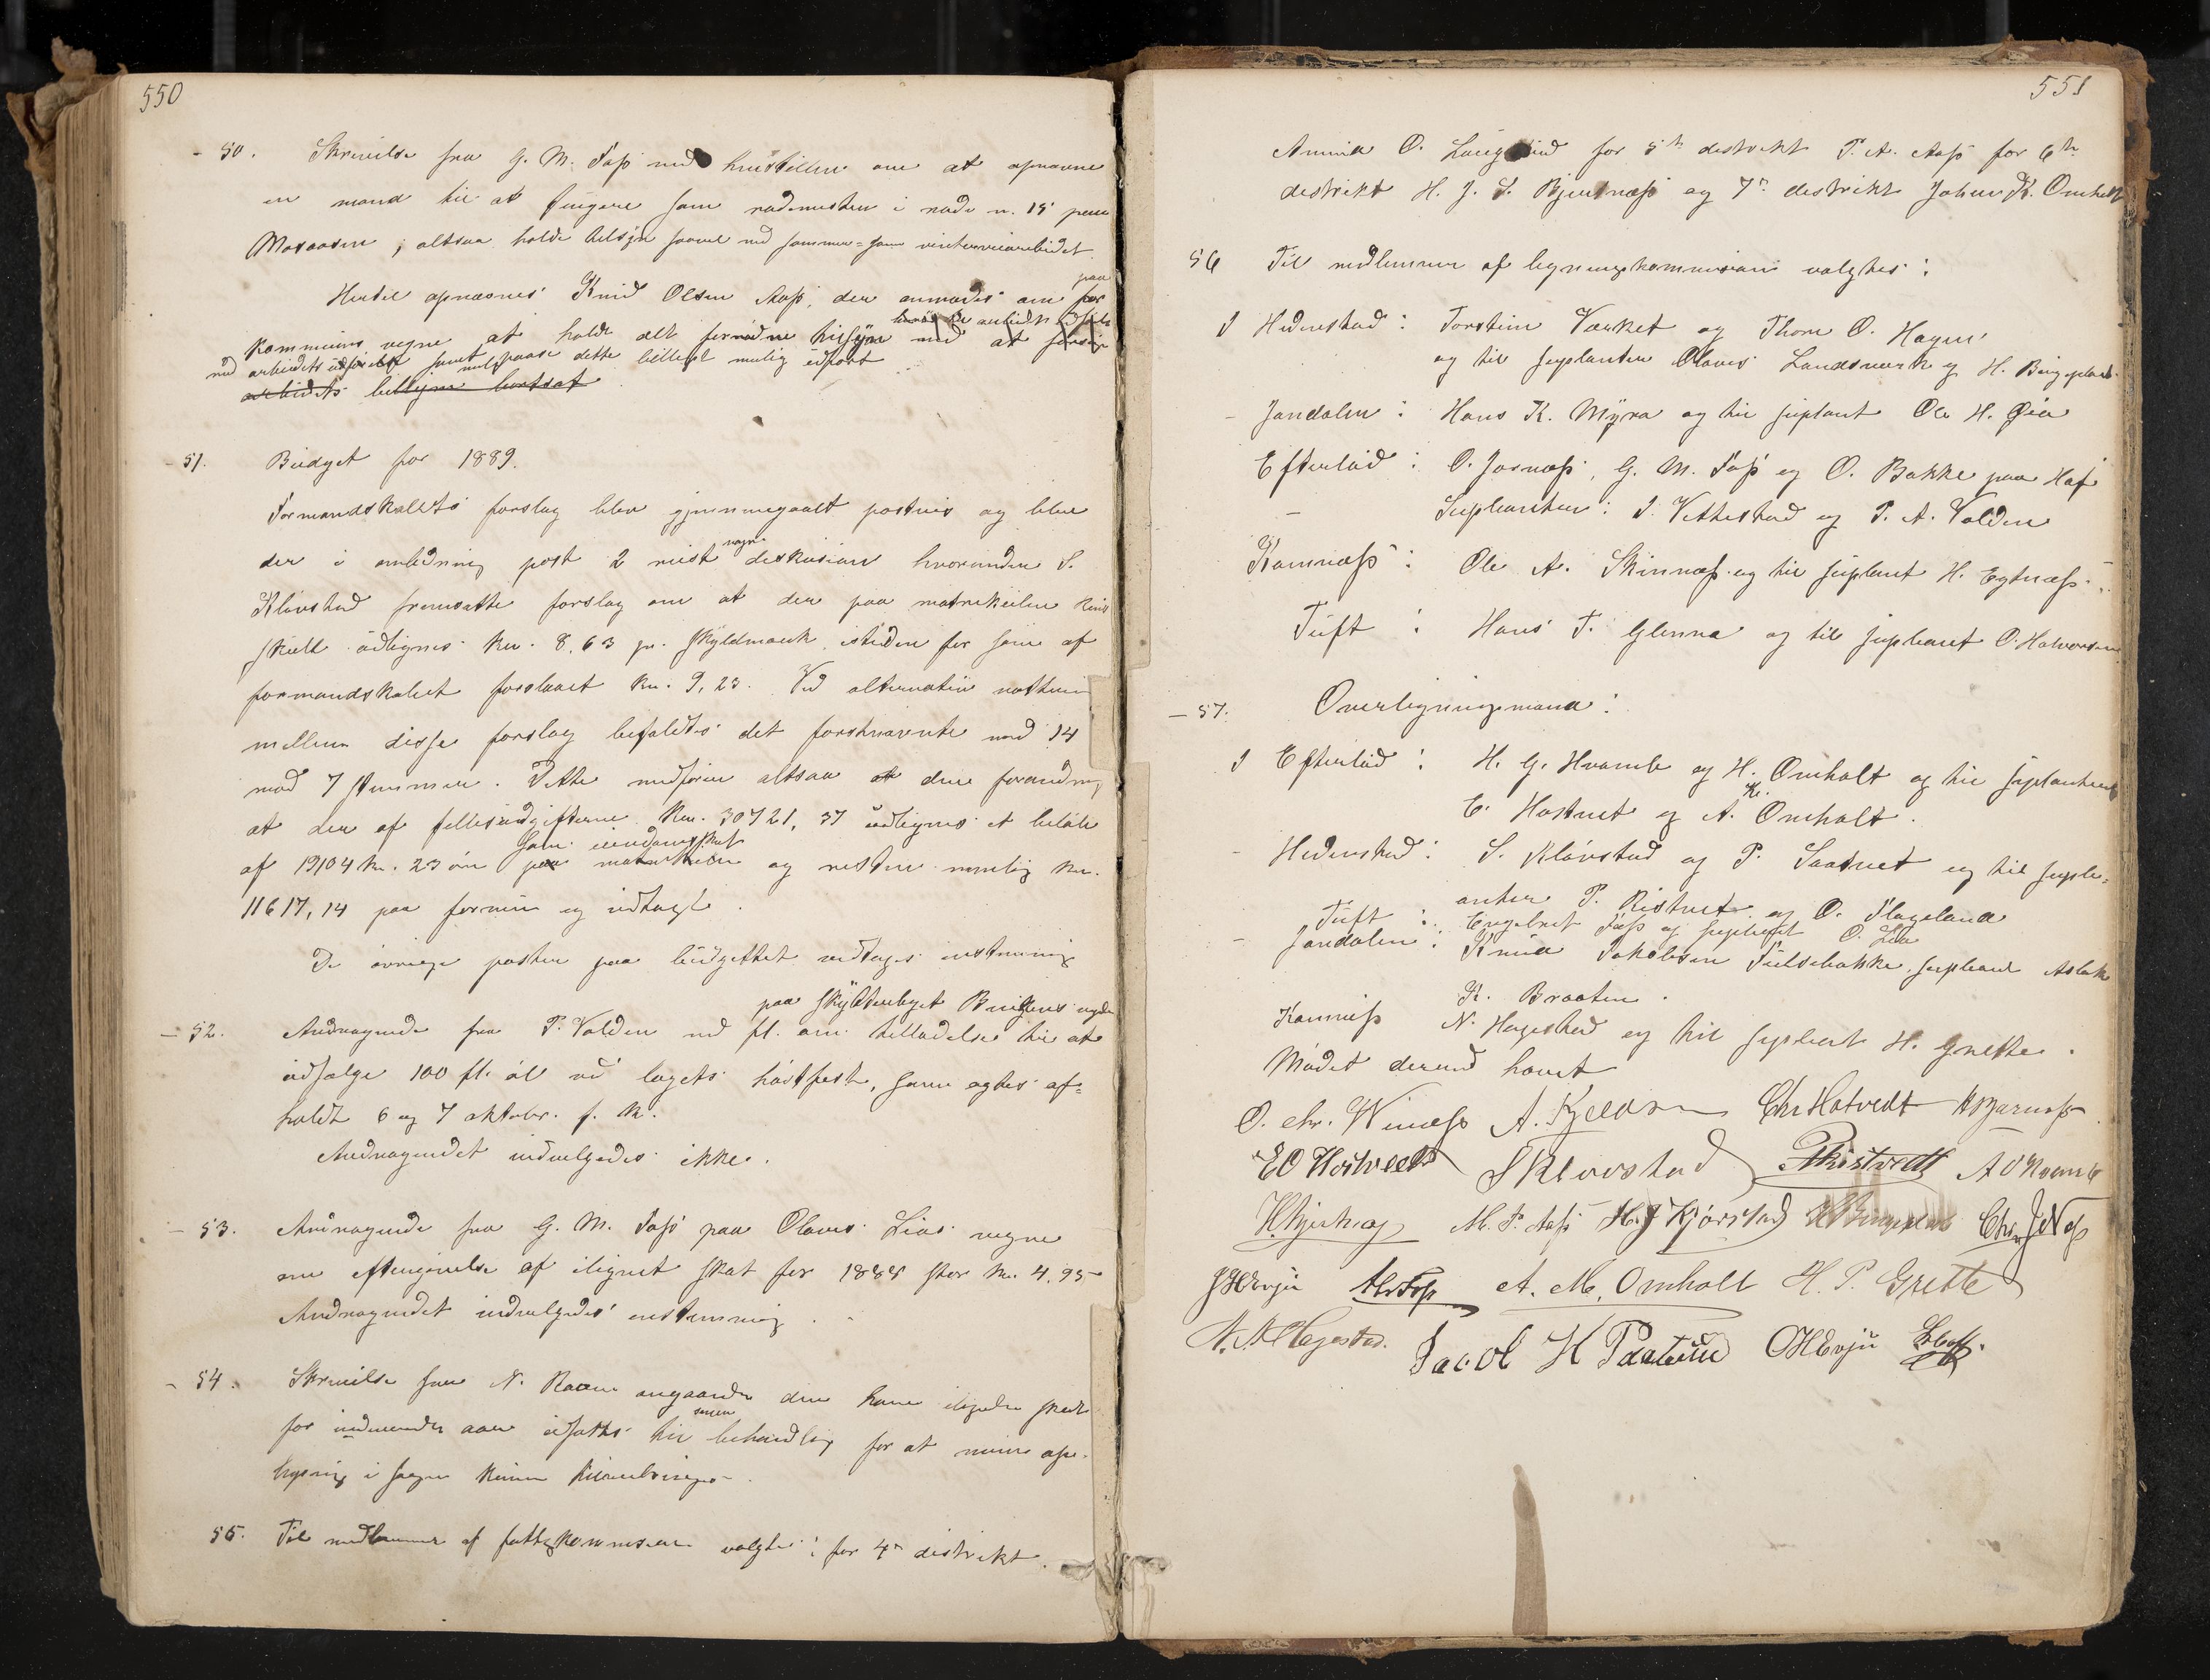 550
- 50. Skrivelse fra G. M. Fosß med henstillen om at opnævne
en mand til at fungere som rodemester i rode n. 15 paa
Moraasen, altsaa holde tilsyn saavel med sommer= som vinterveiarbeidet.
Hertil opnævnes Knud Olsen Aasß, der anmodes om paa for
kommunens vegne at holde alt fornødne tilsyn med at
med arbeidets udførelse samt paase dette billigst mulig udført
arbeidets billigste bortsat
- 51. Budget for 1889.
Formandskabets forslag blev gjennemgaaet postvis og blev
der i anledning post 2 reist nogen diskusion hvorunder S.
Kløvstad fremsatte forslag om at der paa matrikulen kun
skulde udlignes kr. 8,63 pr. skyldmark isteden for som af
formandskabet foreslaaet kr. 9,23. Ved alternativ votering
mellem disse forslag bifaldtes det førstnævnte med 14
mod 7 stemmer. Dette medfører altsaa den forandring
at der af fellesudgifterne kr. 30721,37 udlignes et beløb
af 19104 kr. 23 øre som eiendomsskat paa matrikulen og resten nemlig kr.
11617,14 paa formue og indtægt.
De øvrige poster paa budgettet vedtages enstemmig
paa skytterlaget Brugens vegne
- 52. Andragende fra P. Volden med fl. om tilladelse til at
udsælge 100 fl. øl ved lagets høstfest, som agtes af=
holdt 6 og 7 oktober f. k.
Andragendet indvilgedes ikke.
- 53. Andragende fra G. M. Fosß paa Olaves Lias vegne
om eftergivelse af ilignet skat for 1888 stor kr. 4,95
Andragendet indvilgedes enstemmig.
- 54. Skrivelse fra N. Raaen angaaende den ham ilignede skat
for indeværende aar udsattes til senere behandling for at nærmere op=
lysning i sagen kunne
55. Til medlemmer af fattigkommissionen valgtes: for 4de distrikt
551
O. for 5te distrikt P. A. Aasß for 6te
distrikt H. J. S. Bjertnæsß og 7de distrikt Johan K. Omholt
56 Til medlemmer af ligningskommissionen valgtes:
I Hedenstad: Torstein Værket og Thore O. Hagen
og til suplanter Olaves Landsverk og H. Bingeplads
- Jondalen: Hans K. Myra og til suplant Ole H. Øia
Efteløt: O. Jornæsß, G. M. Fosß og O. Bakke paa Haf
- Suplanter: I. Vettestad og P. A. Volden
Komnæsß: Ole A. Skinnæsß og til suplant H. Egtnæsß.
Tuft: Hans T. Glenna og til suplant O. Halvorsen
- 57. Overligningsmænd:
I Efteløt: H. G. Hvamb og H. Omholt og til suplanter
E. Hostvet og A. K. Omholt.
- Hedenstad: S. Kløvstad og P. Saatvet og til suple=
anter P. Ristvet og O. Flageland
Tuft: Engebret Foss og suplent O. Lia
- Jondalen: Knud Jakobsen Fulsebakke, supleant Aslak
K. Braaten.
Komnæsß N. Hagestad og til suplent H. Grette.
Mødet dermed hævet
O. Chr. Winæss A. Kjeldsen Chr Hotvedt
EO Hostvedt S Kløvstad PRistvedt A O Hvamb
HBjertnæs M. P. Aasß H. J Kjørstad HBingeplads Chr. J Næss
JHEvju A. M. Omholt H. P. Grette
N. N Hagestad. Jacob H Paatun OHEvju